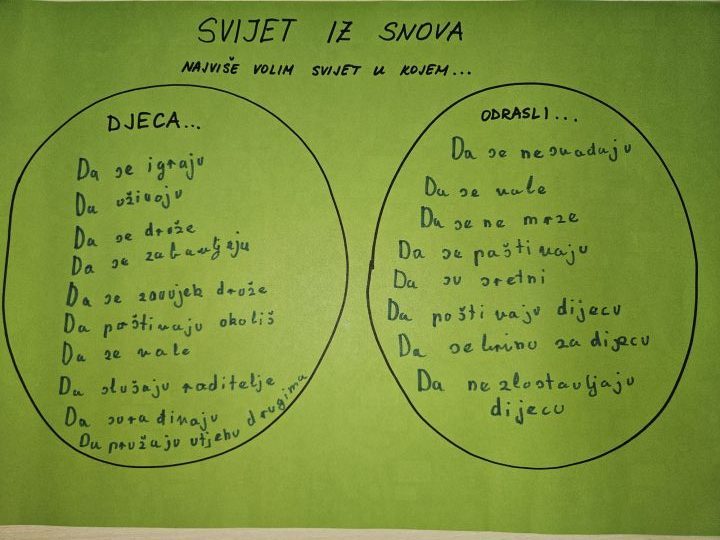 SVIJET IZ SNOVA
NAJVIŠE VOLIM SVIJET U KOJEM...
DJECA...
Da se igraju
Da uživaju
Da se druže
Da se zabavljaju
Da se zauvjek druže
Da poštivaju okoliš
Da se vole
Da slušaju roditelje
Da surađivaju
Da pružaju utjehu drugima
ODRASLI...
Da se nesvađaju
Da se vole
Da se ne mrze
Da se poštivaju
Da su sretni
Da poštivaju dijecu
Da se brinu za dijecu
Da ne zlostavljaju
dijecu